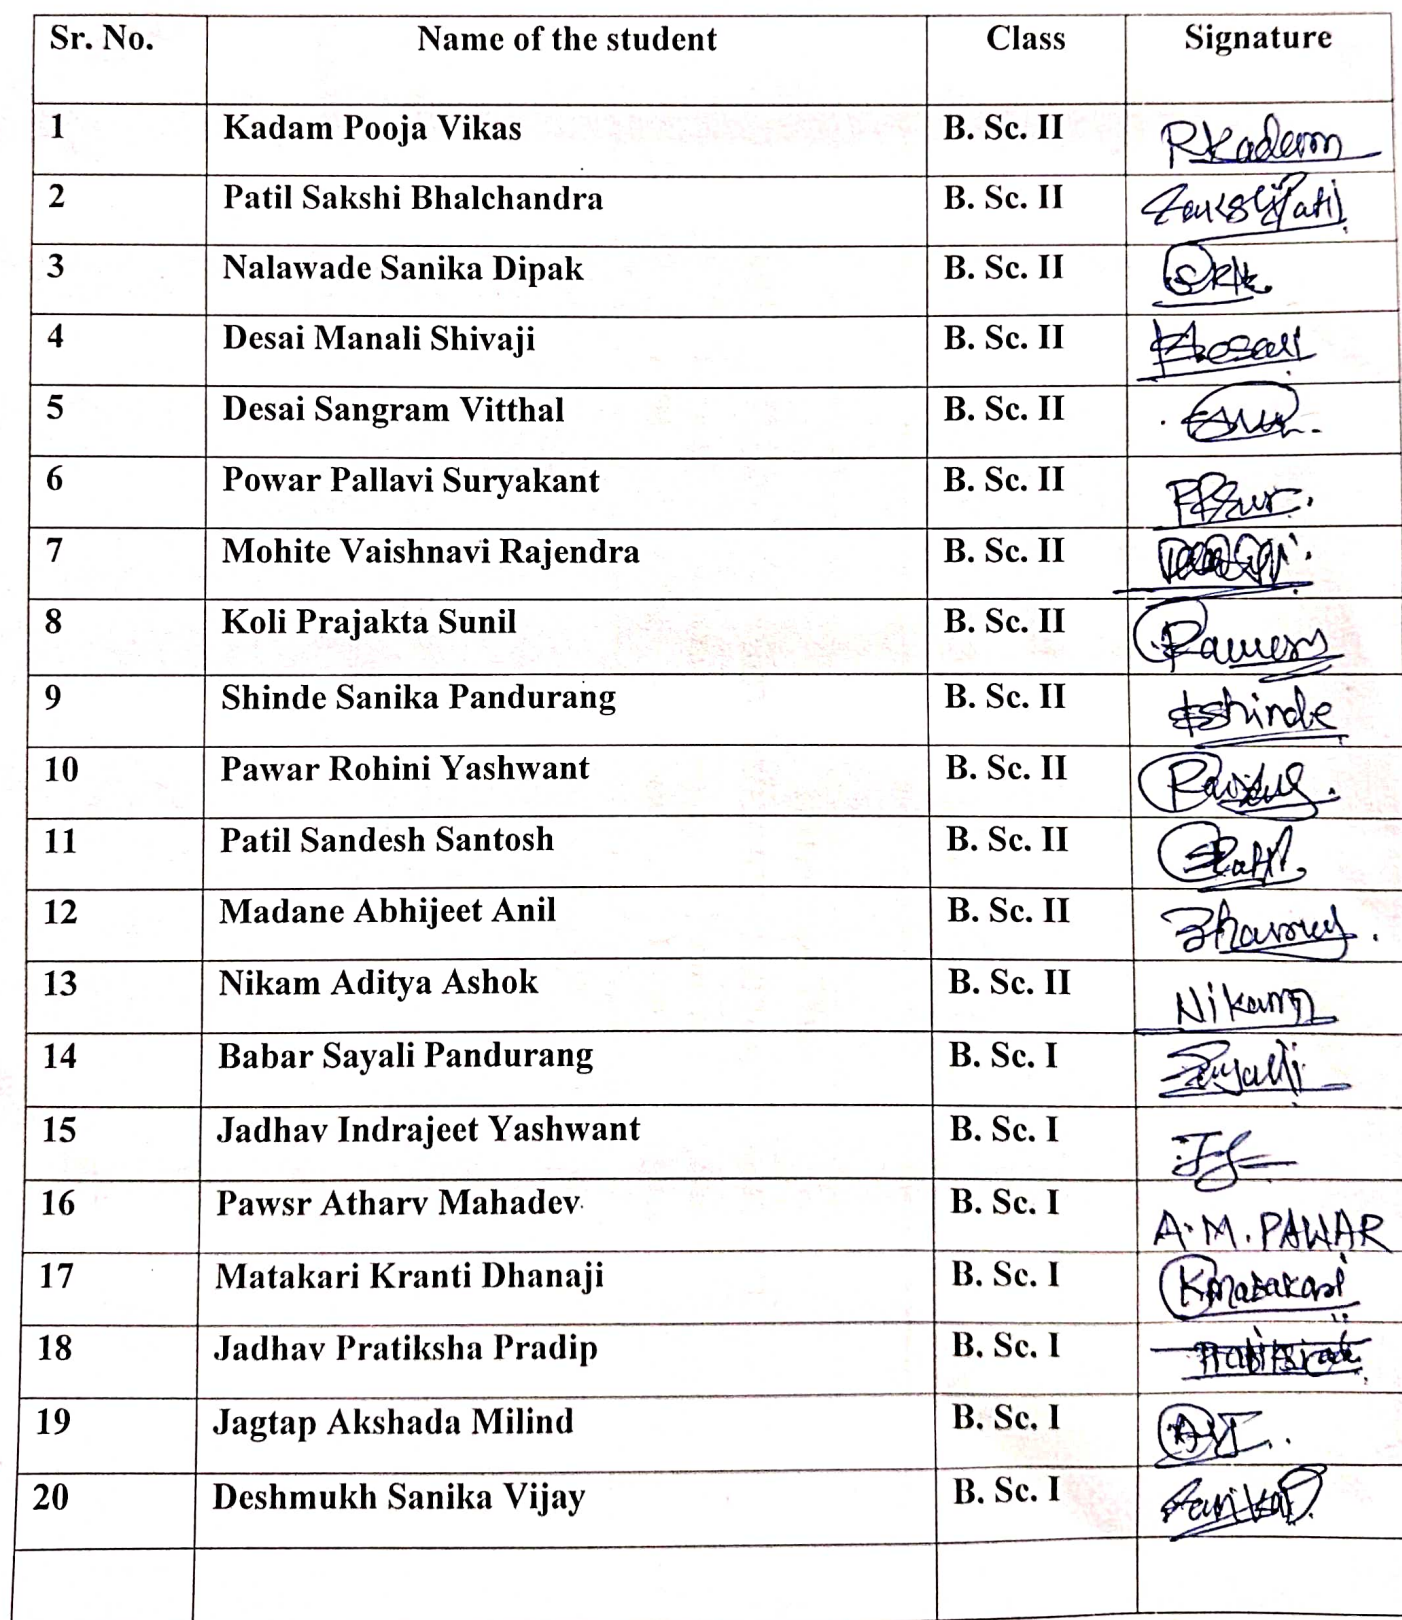 Sr. No. Name of the student Class Signature
1 Kadam Pooja Vikas B. Sc. II PKadam
2 Patil Sakshi Bhalchandra B. Sc. II
3 Nalawade Sanika Dipak B. Sc. II
4 Desai Manali Shivaji B. Sc. II
5 Desai Sangram Vitthal B. Sc. II
6 Powar Pallavi Suryakant B. Sc. II
7 Mohite Vaishnavi Rajendra B. Sc. II
8 Koli Prajakta Sunil B. Sc. II
9 Shinde Sanika Pandurang B. Sc. II Sshinde
10 Pawar Rohini Yashwant B. Sc. II
11 Patil Sandesh Santosh B. Sc. II
12 Madane Abhijeet Anil B. Sc. II
13 Nikam Aditya Ashok B. Sc. II Nikam
14 Babar Sayali Pandurang B. Sc. I
15 Jadhav Indrajeet Yashwant B. Sc. I
16 Pawsr Atharv Mahadev B. Sc. I A.M. PAWAR
17 Matakari Kranti Dhanaji B. Sc. I Kmatakari
18 Jadhav Pratiksha Pradip B. Sc. I
19 Jagtap Akshada Milind B. Sc. I
20 Deshmukh Sanika Vijay B. Sc. I